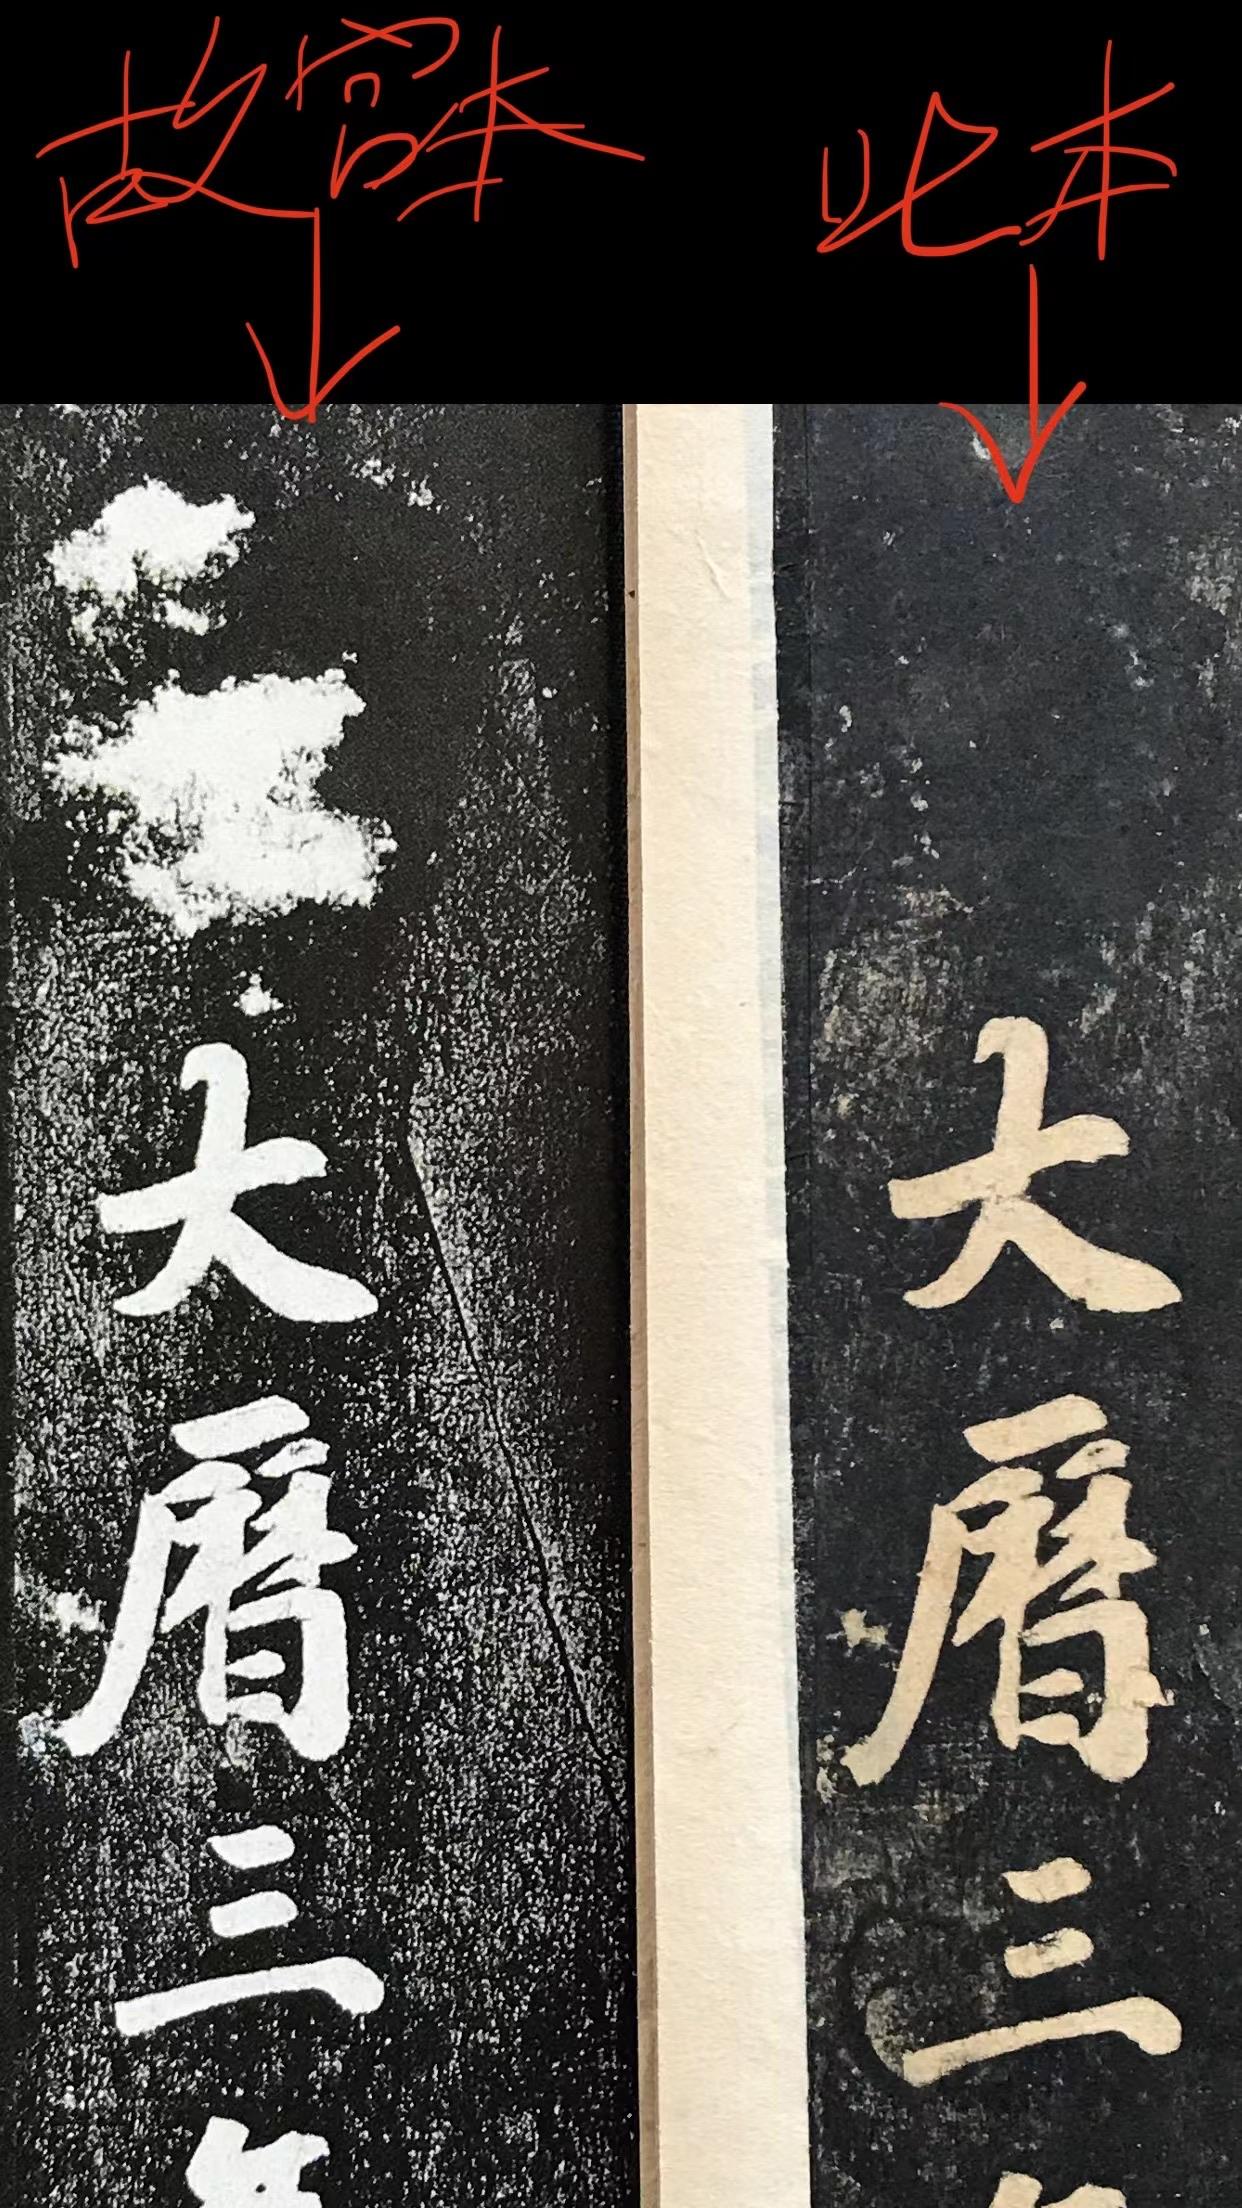 故宫本
此本
大曆三年
大曆三年